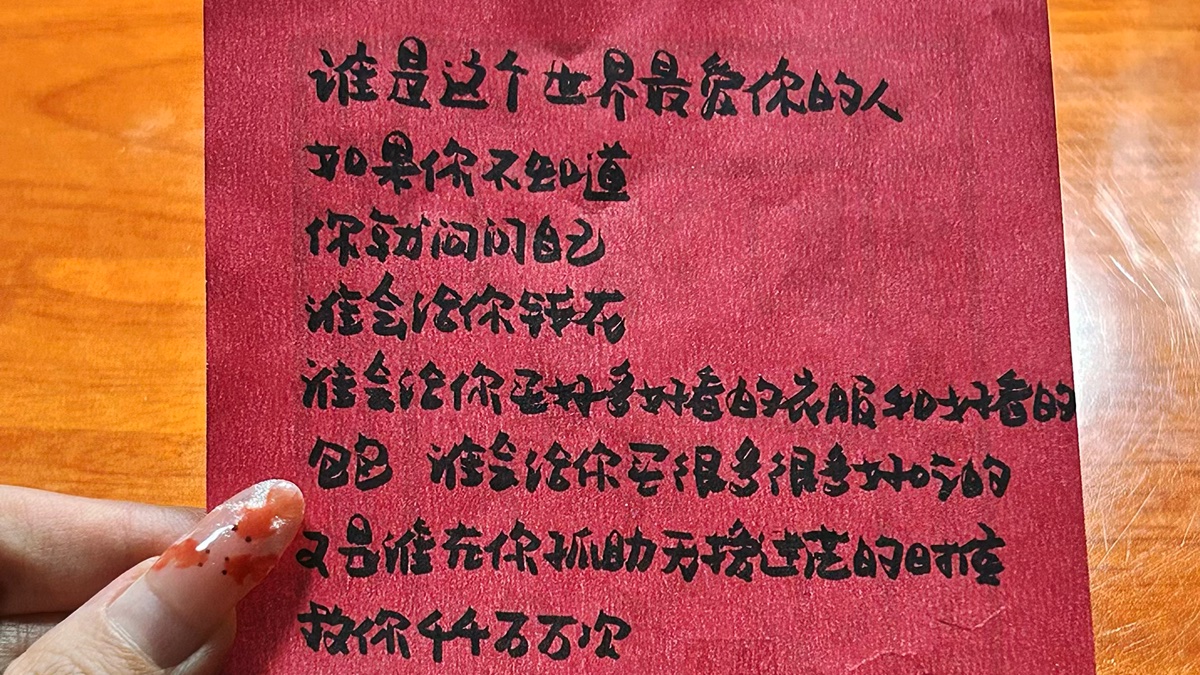 谁是这个世界最爱你的人
如果你不知道
你就问问自己
谁会给你钱花
谁会给你买好多好看的衣服和好看的
包包 谁会给你买很多很多好吃的
又是谁在你孤助无援迷茫的时候
救你千千万万次